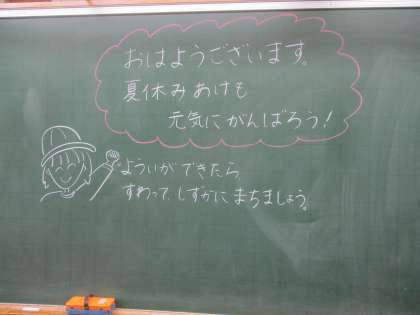 おはようございます。
夏休みあけも
元気にがんばろう！
よういができたら
すわって、しずかにまちましょう。